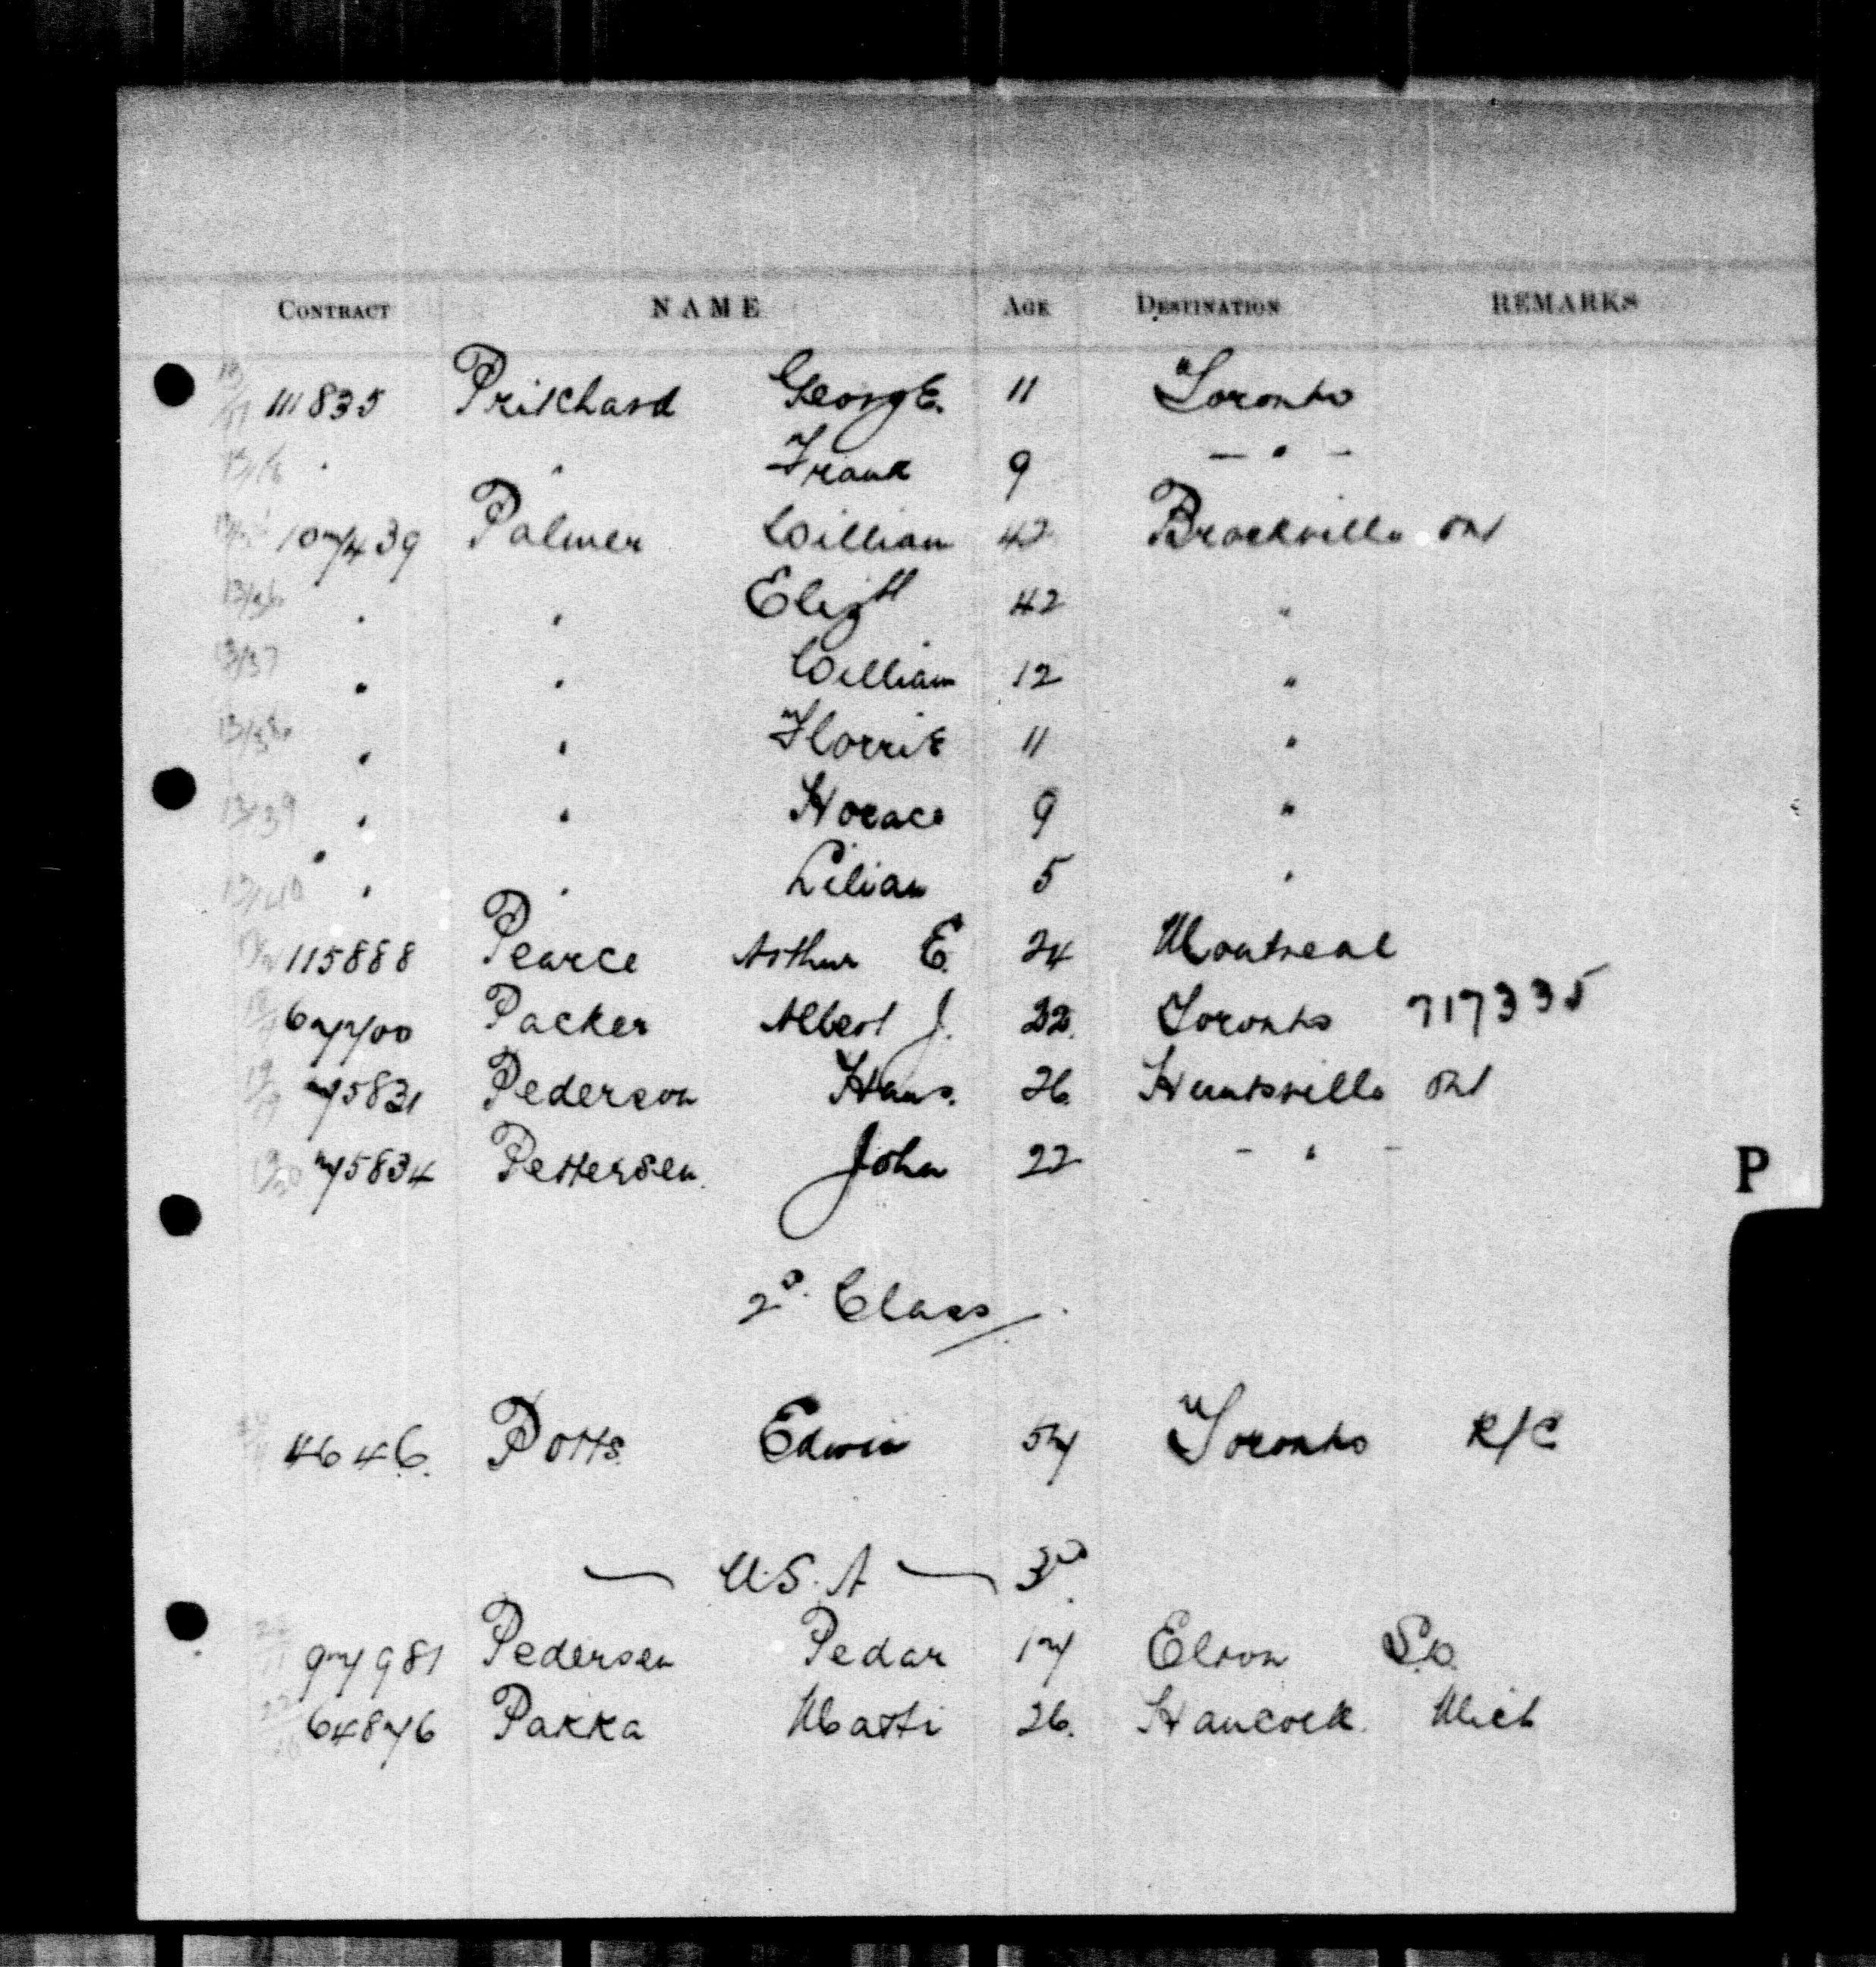 CONTRACT NAME AGE DESTINATION REMARKS
111835 Pritchard George. 11 Toronto
" " Frank 9 — " —
107439 Palmer William 42 Brockville Ont
13/36 " " Elizth 42 "
13/37 " " William 12 "
13/38 " " Florrie 11 "
13/39 " " Horace 9 "
13/40 " " Lilian 5 "
115888 Pearce Arthur E. 24 Montreal
Packer Albert J. Toronto 717335
75831 Pederson Hans. 26. Huntsville Ont
75834 Pettersen. John 22 - " -
2D. Class
4646. Potts. Edwin 57 Toronto R/C
— U.S.A — 3D.
97981 Pedersen Pedar 17 Elron S.D.
64876 Pakka Matti 26. Hancock. Mich
P